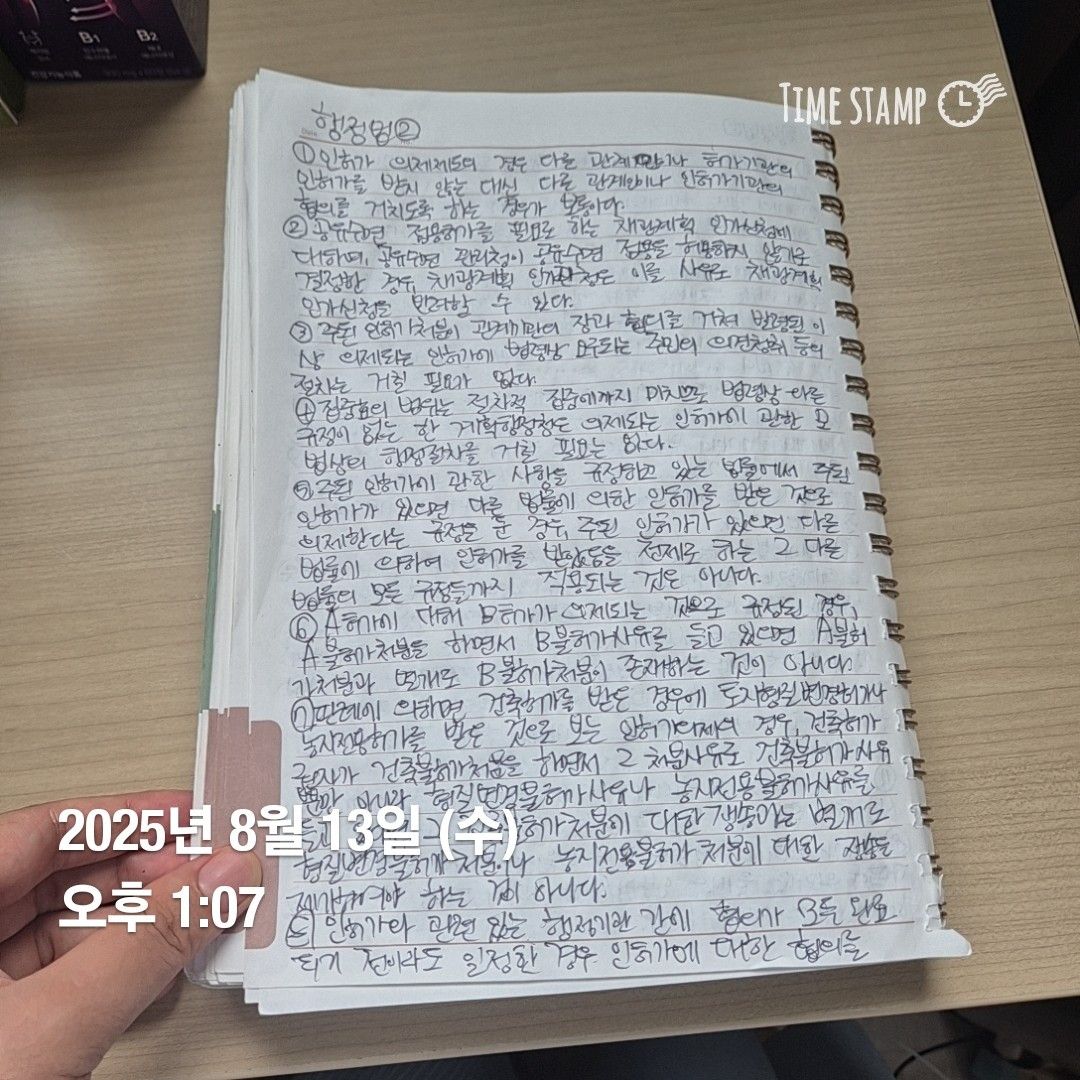 B1
B2
TIME STAMP
행정법②
①인허가 의제제도의 경우 다른 관계기관이나 허가기관의
인허가를 받지 않는 대신 다른 관계인이나 인허가기관의
협의를 거치도록 하는 경우가 보통이다.
② 공유수면 점용허가를 필요로 하는 채광계획 인가신청에
대하여, 공유수면 관리청이 공유수면 점용을 허용하지 않기로
결정한 경우, 채광계획 인가관청은 이를 사유로 채광계획
인가신청을 반려할 수 있다.
③ 주된 인허가처분이 관계기관의 장과 협의를 거쳐 발령된 이
상 의제되는 인허가에 법령상 요구되는 주민의 의견청취 등의
절차는 거칠 필요가 없다.
④ 집중효의 범위는 절차적 집중에까지 미치므로 법령상 다른
규정이 없는 한 계획행정청은 의제되는 인허가에 관한 모
법상의 행정절차를 거칠 필요는 없다.
⑤ 주된 인허가에 관한 사항을 규정하고 있는 법률에서 주된
인허가가 있으면 다른 법률에 의한 인허가를 받은 것으로
의제한다는 규정을 둔 경우, 주된 인허가가 있으면 다른
법률에 의하여 인허가를 받았음을 전제로 하는 그 다른
법률의 모든 규정들까지 적용되는 것은 아니다.
⑥ A허가에 대해 B허가가 의제되는 것으로 규정된 경우,
A불허가처분을 하면서 B불허가사유를 들고 있으면 A불허
가처분과 별개로 B불허가처분이 존재하는 것이 아니다.
⑦판례에 의하면 건축허가를 받은 경우에 토지형질변경허가나
농지전용허가를 받은 것으로 보는 인허가의제의 경우, 건축허가
권자가 건축불허가처분을 하면서 그 처분사유로 건축불허가사유
뿐만 아니라 형질변경불허가사유나 농지전용불허가사유를
허가처분에 대한 쟁송과는 별개로
형질변경불허가처분이나 농지전용불허가처분에 대한 쟁송을
제기하여야 하는 것이 아니다.
⑧ 인허가와 관련 있는 행정기관 간에 협의가 모두 완료
되기 전이라도 일정한 경우 인허가에 대한 협의를
2025년 8월 13일 (수)
오후 1:07